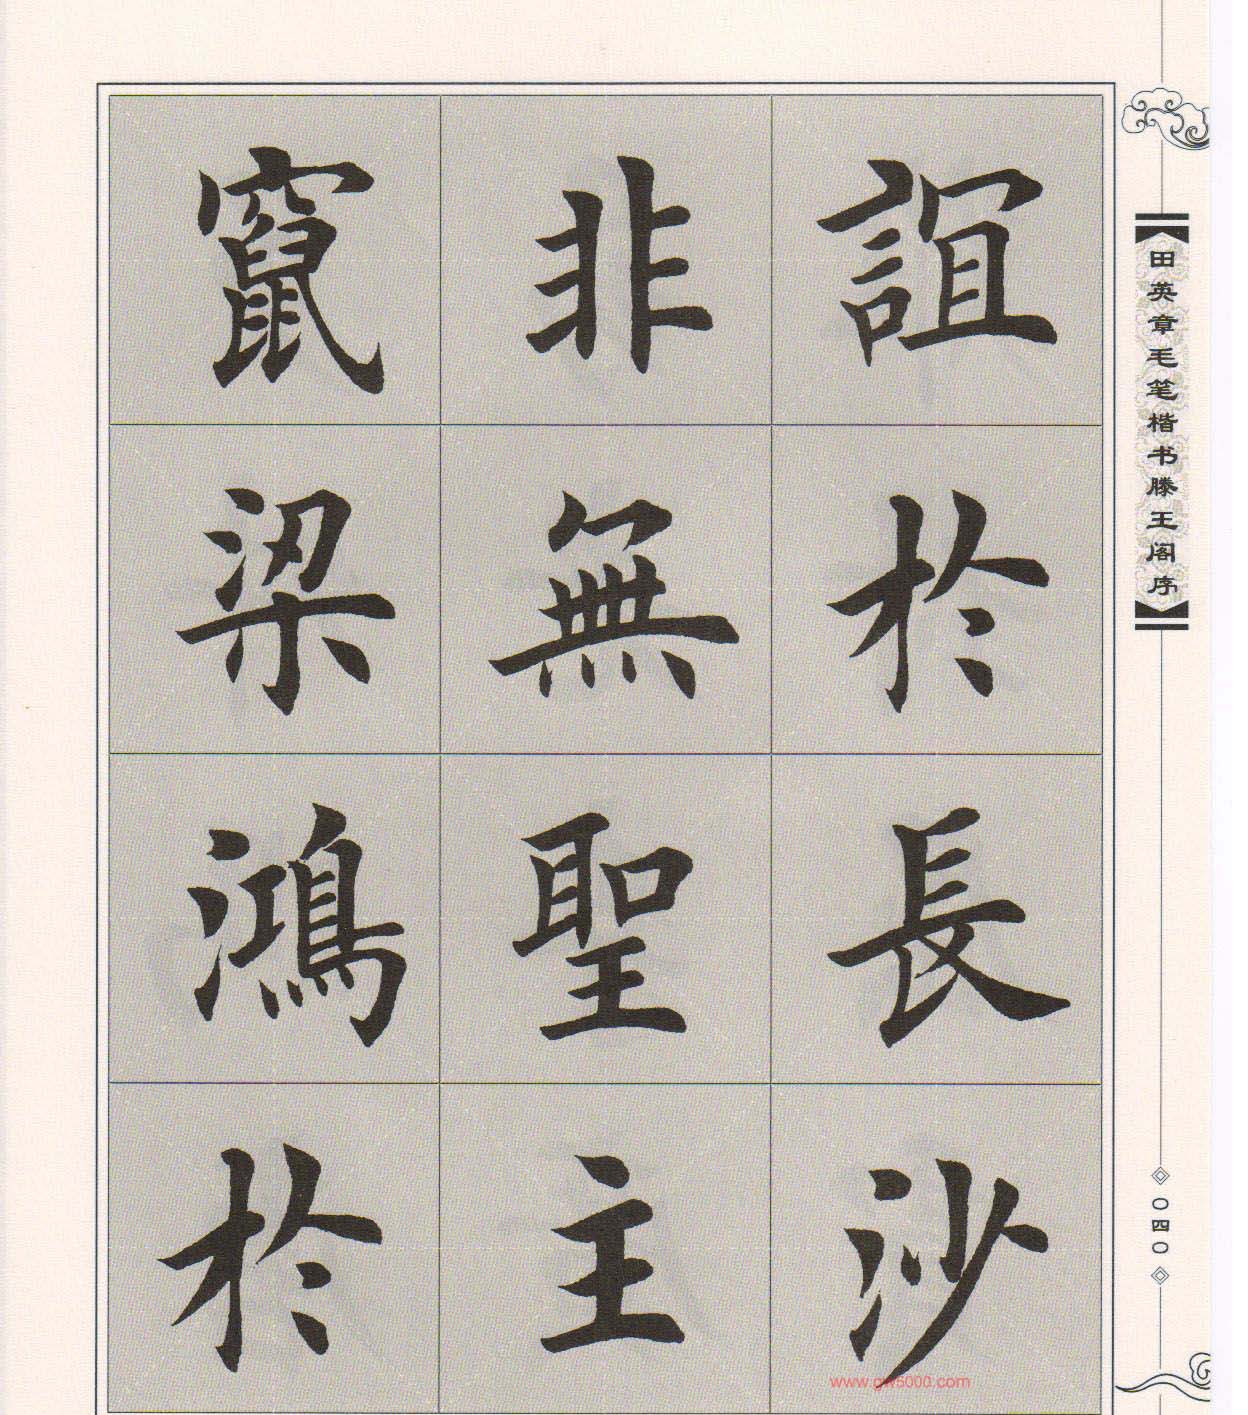 誼於長沙
非無聖主
竄梁鴻於
田英章毛笔楷书滕王阁序
〇四〇
www.gw5000.com